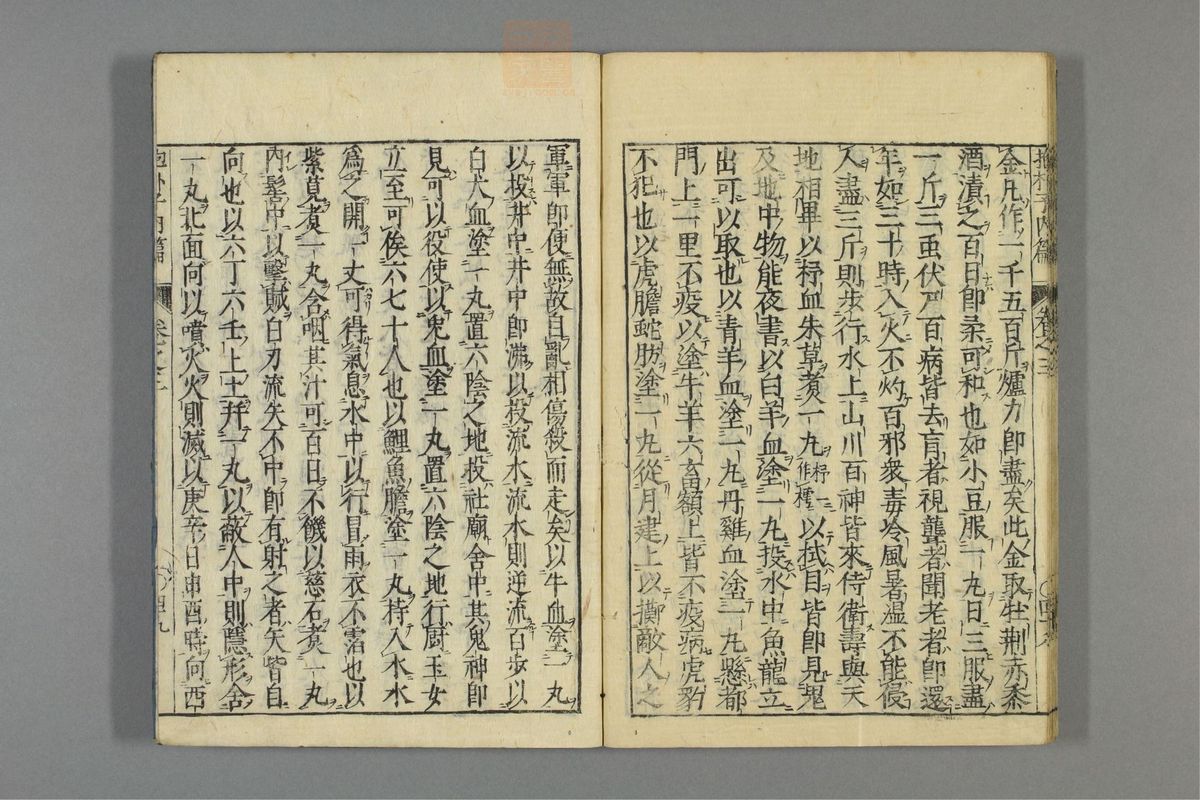 抱朴子內篇 卷之三
金凡作一千五百斤爐力即盡矣此金取牡荆赤黍
酒漬之百日即柔可和也如小豆服一丸日三服盡
一斤三虫伏尸百病皆去盲者視聾者聞老者即還
年如三十時入火不灼百邪衆毒冷風暑溫不能侵
人盡三斤則步行水上山川百神皆來侍衛壽與天
地相畢以杼血朱草煮一丸杼一作樗以拭目皆即見鬼
及地中物能夜書以白羊血塗一丸投水中魚龍立
出可以取也以青羊血塗一丸丹雞血塗一丸懸都
門上一里不疫以塗牛羊六畜額上皆不疫病虎豹
不犯也以虎膽蛇肪塗一丸從月建上以擲敵人之
軍軍即便無故自亂相傷殺而走矣以牛血塗一丸
以投井中井中即沸以投流水流水則逆流百步以
白犬血塗一丸置六陰之地投社廟舍中其鬼神即
見可以役使以兔血塗一丸置六陰之地行厨玉女
立至可俟六七十人也以鯉魚膽塗一丸持入水水
爲之開一丈可得氣息水中以行冒雨衣不霑也以
紫莧煮一丸含咽其汁可百日不饑以慈石煮一丸
內髻中以擊賊白刃流矢不中即有射之者矢皆自
向也以六丁六壬上土幷一丸以蔽人中則隱形舍
一丸北面向以噴火火則滅以庚辛日申酉時向西
抱朴子內篇 卷之三 四九